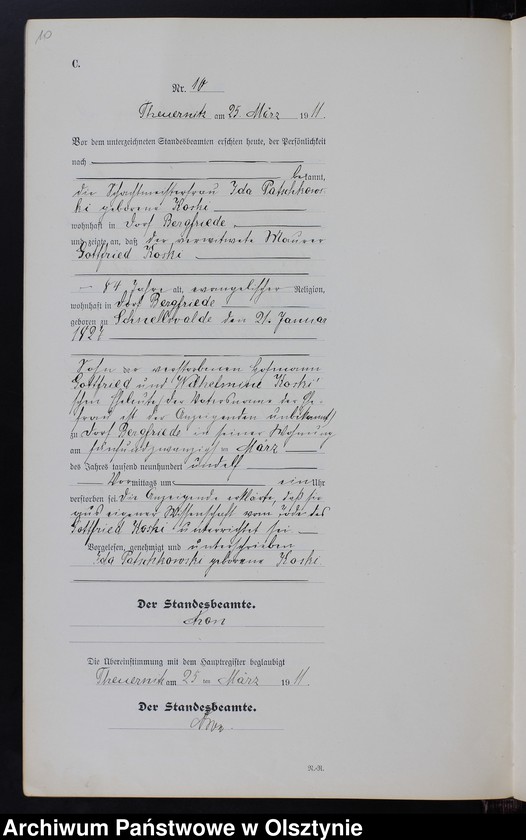 10
C.
Nr. 10
Theuernitz am 25. März 1911.
Vor dem unterzeichneten Standesbeamten erschien heute, der Persönlichkeit
nach
bekannt,
die Schachtmeisterfrau Ida Patschkows-
ki geborene Koski
wohnhaft in Dorf Bergfriede
und zeigte an, daß der verwitwete Maurer
Gottfried Koski
84 Jahre alt, evangelischer Religion,
wohnhaft in Dorf Bergfriede
geboren zu Schnellwalde den 21. Januar
1827
Sohn der verstorbenen
Gottfried und Wilhelmine Koski'
schen Eheleute (der Vatersname der Ehe-
frau ist der Anzeigenden unbekannt)
zu Dorf Bergfriede in seiner Wohnung
am fünfundzwanzigsten März
des Jahres tausend neunhundert undelf
Vormittags um ein Uhr
verstorben sei. Die Anzeigende erklärte, daß sie
aus eigener Wissenschaft vom Tode des
Gottfried Koski unterrichtet sei
Vorgelesen, genehmigt und unterschrieben
Ida Patschkowski geborene Koski.
Der Standesbeamte.
Die Übereinstimmung mit dem Hauptregister beglaubigt
Theuernitz am 25 ten März 1911.
Der Standesbeamte.
R.-R.
Archiwum Państwowe w Olsztynie